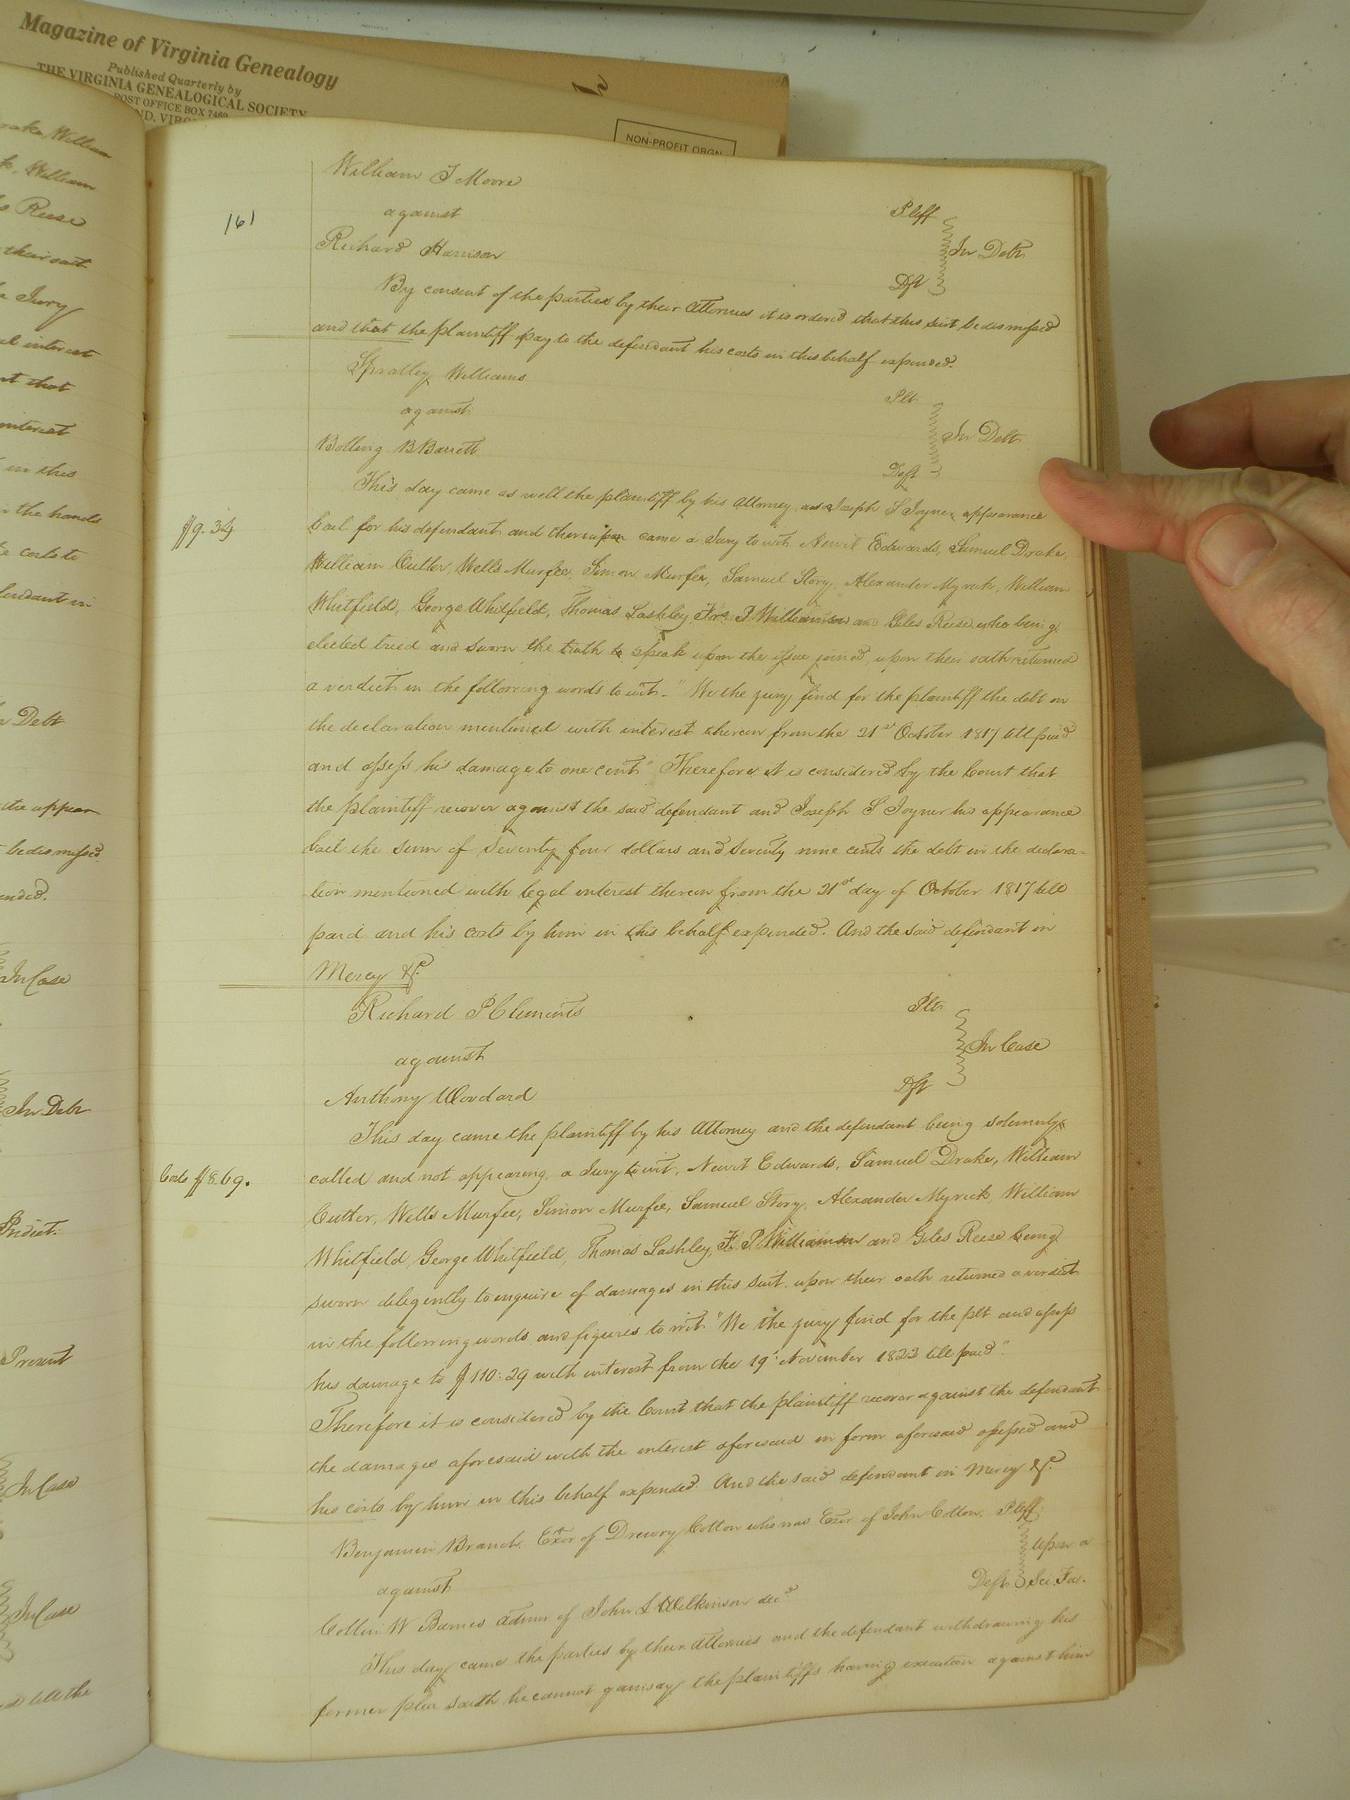 Magazine of Virginia Genealogy
Published Quarterly by
THE VIRGINIA GENEALOGICAL SOCIETY
POST OFFICE BOX 7469
NON-PROFIT ORGN
161
William T Moore
against Pltff
Richard Harrison In Debt
Dft
By consent of the parties by their Attornies it is ordered that this suit be dismissed
and that the plaintiff pay to the defendant his costs in this behalf expended.
Spratley Williams
against Plt
Bolling B Barrett In Debt
Deft
This day came as well the plaintiff by his attorney as Joseph S Joyner appearance
$9.34
bail for his defendant and thereupon came a Jury to wit Newit Edwards, Samuel Drake,
William Cutler, Wells Murfee, Simon Murfee, Samuel Story, Alexander Myrick, William
Whitfield, George Whitfield, Thomas Lashley, P Williamson and Giles Reese who being
elected tried and sworn the truth to speak upon the issue joined upon their oath returned
a verdict in the following words to wit. "We the jury find for the plaintiff the debt in
the declaration mentioned with interest thereon from the 21st October 1817 till paid
and assess his damage to one cent" Therefore it is considered by the Court that
the plaintiff recover against the said defendant and Joseph S Joyner his appearance
bail the sum of Seventy four dollars and Seventy nine cents the debt in the declara-
tion mentioned with legal interest thereon from the 21st day of October 1817 till
paid and his costs by him in this behalf expended. And the said defendant in
Mercy &c.
Richard P Clements Plt
against In Case
Anthony Woodard Dft
This day came the plaintiff by his Attorney and the defendant being solemnly
Costs $8.69.
called and not appearing, a Jury to wit, Newit Edwards, Samuel Drake, William
Cutler, Wells Murfee, Simon Murfee, Samuel Story, Alexander Myrick, William
Whitfield, George Whitfield, Thomas Lashley, F. P. Williamson and Giles Reese being
sworn diligently to enquire of damages in this suit upon their oath returned a verdict
in the following words and figures to wit "We the jury find for the plt and assess
his damage to $110:29 with interest from the 19th November 1823 till paid".
Therefore it is considered by the Court that the plaintiff recover against the defendant
the damages aforesaid with the interest aforesaid in form aforesaid assessed and
his costs by him in this behalf expended. And the said defendant in Mercy &c.
Benjamin Branch Exor of Drewry Cotton who was Exor of John Cotton. Pltff
against upon a
Deft Sci. Fa.
Collin W Barnes Admr of John S Wilkinson decd
This day came the parties by their attornies and the defendant withdrawing his
former plea saith he cannot gainsay the plaintiffs having execution against him